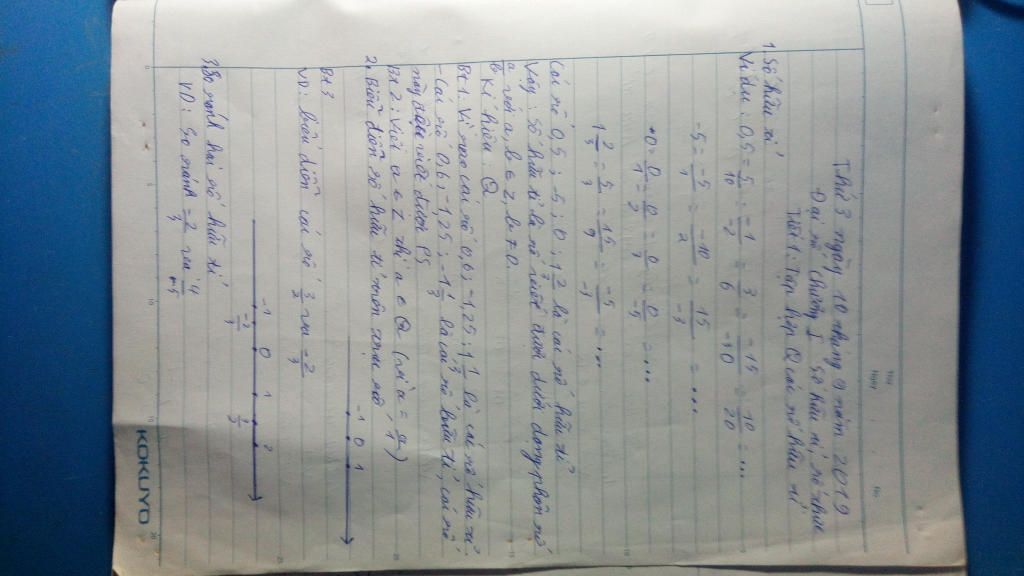 Thứ
Ngày
No
Thứ 3 ngày 10 tháng 9 năm 2019
Đại số Chương I Số hữu tỉ, số thực
Tiết 1: Tập hợp Q các số hữu tỉ
1. Số hữu tỉ
Ví dụ: 0,5 = 5/10 = -1/-2 = 3/6 = -15/-30 = 10/20 = ...
-5 = -5/1 = -10/2 = 15/-3 = ...
+0 = 0/1 = 0/2 = 0/7 = 0/-5 = ...
1 2/3 = 5/3 = 15/9 = -5/-3 = ...
Các số 0,5; -5; 0; 1 2/3 là các số hữu tỉ
Vậy: Số hữu tỉ là số viết được dưới dạng phân số
a/b với a, b ∈ Z, b ≠ 0.
Kí hiệu: Q
Bt 1. Vì sao các số 0,6; -1,25; 1 1/3 là các số hữu tỉ.
- Các số 0,6; -1,25; -1 1/3 là các số hữu tỉ, các số
này đều viết dưới PS
Bt 2: Với a ∈ Z thì a ∈ Q (vì a = a/1)
2. Biểu diễn số hữu tỉ trên trục số
-1 0 1
Bt 3
VD: biểu diễn các số 3/2 và -2/3
-1 -2/3 0 1 3/2 2
3. So sánh hai số hữu tỉ
VD: So sánh -2/3 và 4/-5
KOKUYO